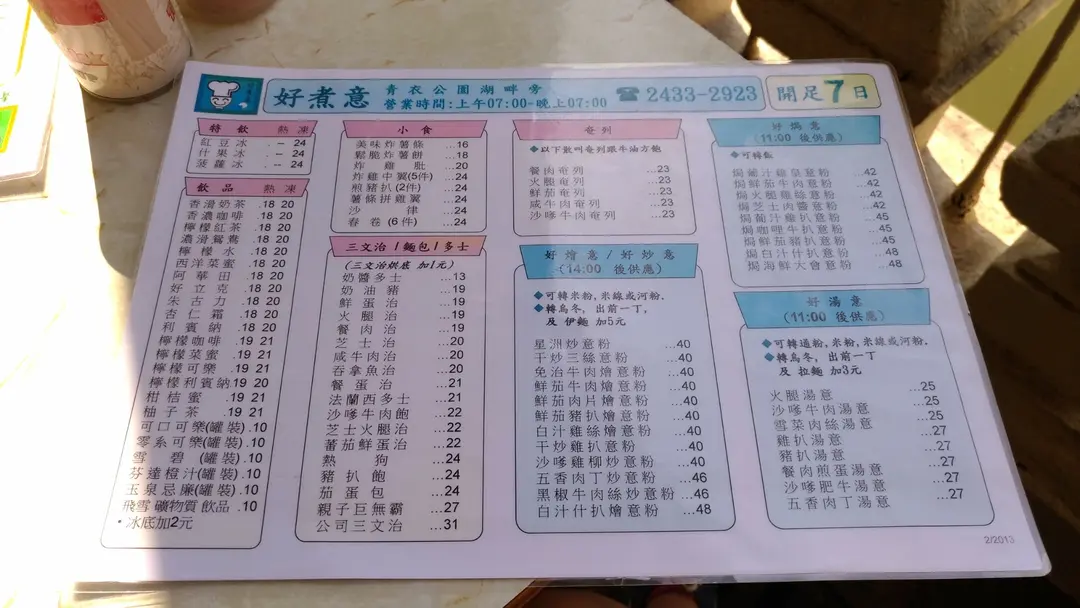 好煮意
青衣公園湖畔旁
營業時間:上午07:00-晚上07:00
☎ 2433-2923
開足7日
特飲 熱 凍
紅豆冰 .– 24
什果冰 .– 24
菠蘿冰 .– 24
飲品 熱 凍
香滑奶茶 .18 20
香濃咖啡 .18 20
檸檬紅茶 .18 20
濃滑鴛鴦 .18 20
檸檬水 .18 20
西洋菜蜜 .18 20
阿華田 .18 20
好立克 .18 20
朱古力 .18 20
杏仁霜 .18 20
利賓納 .18 20
檸檬咖啡 .19 21
檸檬菜蜜 .19 21
檸檬可樂 .19 21
檸檬利賓納 .19 20
柑桔蜜 .19 21
柚子茶 .19 21
可口可樂(罐裝) .10
零系可樂(罐裝) .10
雪碧(罐裝) .10
芬達橙汁(罐裝) .10
玉泉忌廉(罐裝) .10
飛雪礦物質飲品 .10
•冰底加2元
小食
美味炸薯條 ...16
鬆脆炸薯餅 ...18
炸雞肶 ...20
炸雞中翼(5件) ...24
煎豬扒(2件) ...24
薯條拼雞翼 ...24
沙律 ...24
春卷(6件) ...24
三文治/麵包/多士
(三文治烘底 加1元)
奶醬多士 ...13
奶油豬 ...19
鮮蛋治 ...19
火腿治 ...19
餐肉治 ...19
芝士治 ...20
咸牛肉治 ...20
吞拿魚治 ...20
餐蛋治 ...21
法蘭西多士 ...21
沙嗲牛肉飽 ...22
芝士火腿治 ...22
蕃茄鮮蛋治 ...22
熱狗 ...24
豬扒飽 ...24
茄蛋包 ...24
親子巨無霸 ...27
公司三文治 ...31
奄列
◆以下散叫奄列跟牛油方飽
餐肉奄列 ...23
火腿奄列 ...23
鮮茄奄列 ...23
咸牛肉奄列 ...23
沙嗲牛肉奄列 ...23
好燴意/好炒意
(14:00 後供應)
◆可轉米粉,米線或河粉.
◆轉烏冬, 出前一丁,
及 伊麵 加5元
星洲炒意粉 ...40
干炒三絲意粉 ...40
免治牛肉燴意粉 ...40
鮮茄牛肉燴意粉 ...40
鮮茄肉片燴意粉 ...40
鮮茄豬扒燴意粉 ...40
白汁雞絲燴意粉 ...40
干炒雞扒意粉 ...40
沙嗲雞柳炒意粉 ...40
五香肉丁炒意粉 ...46
黑椒牛肉絲炒意粉 ...46
白汁什扒燴意粉 ...48
好焗意
(11:00 後供應)
◆可轉飯
焗葡汁雞皇意粉 ...42
焗鮮茄牛肉意粉 ...42
焗火腿雞絲意粉 ...42
焗芝士肉醬意粉 ...42
焗葡汁雞扒意粉 ...45
焗咖喱牛扒意粉 ...45
焗鮮茄豬扒意粉 ...45
焗白汁什扒意粉 ...48
焗海鮮大會意粉 ...48
好湯意
(11:00 後供應)
◆可轉通粉,米粉,米線或河粉.
◆轉烏冬, 出前一丁
及 拉麵 加3元
火腿湯意 ...25
沙嗲牛肉湯意 ...25
雪菜肉絲湯意 ...25
雞扒湯意 ...27
豬扒湯意 ...27
餐肉煎蛋湯意 ...27
沙嗲肥牛湯意 ...27
五香肉丁湯意 ...27
2/2013